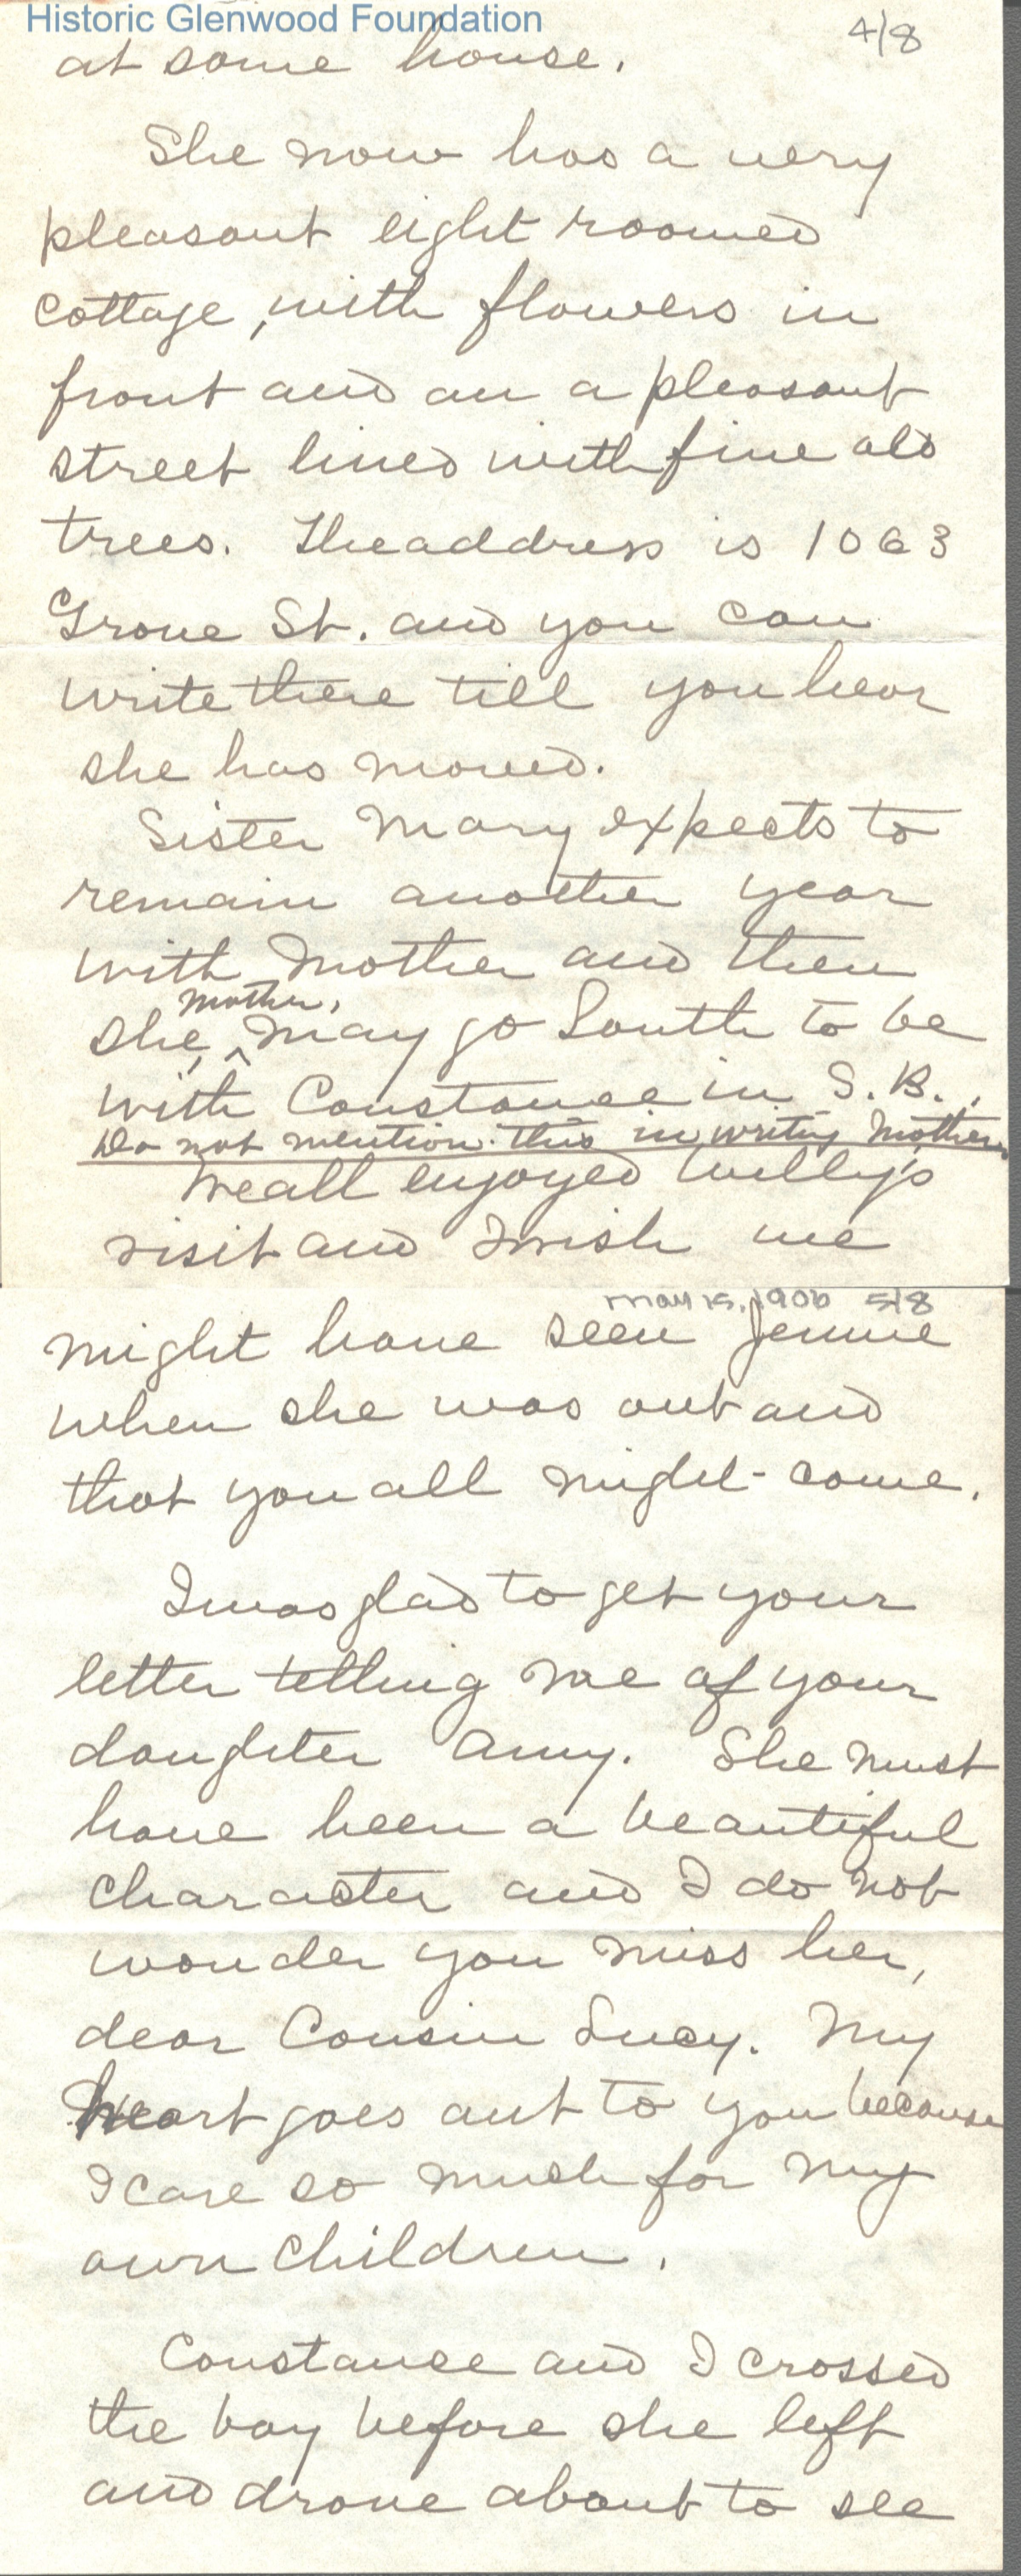 Historic Glenwood Foundation
4/8
at some house.
She now has a very
pleasant eight roomed
cottage, with flowers in
front and on a pleasant
street lined with fine old
trees. The address is 1063
Grove St. and you can
write there till you hear
she has moved.
Sister Mary expects to
remain another year
with Mother and then
mother,
she, ^ may go South to be
with Constance in S. B.
Do not mention this in writing Mother.
We all enjoyed Willy's
visit and I wish we
May 15, 1906 5/8
might have seen Jennie
when she was out and
that you all might come.
I was glad to get your
letter telling me of your
daughter Amy. She must
have been a beautiful
character and I do not
wonder you miss her,
dear Cousin Lucy. My
heart goes out to you because
I care so much for my
own children.
Constance and I crossed
the bay before she left
and drove about to see